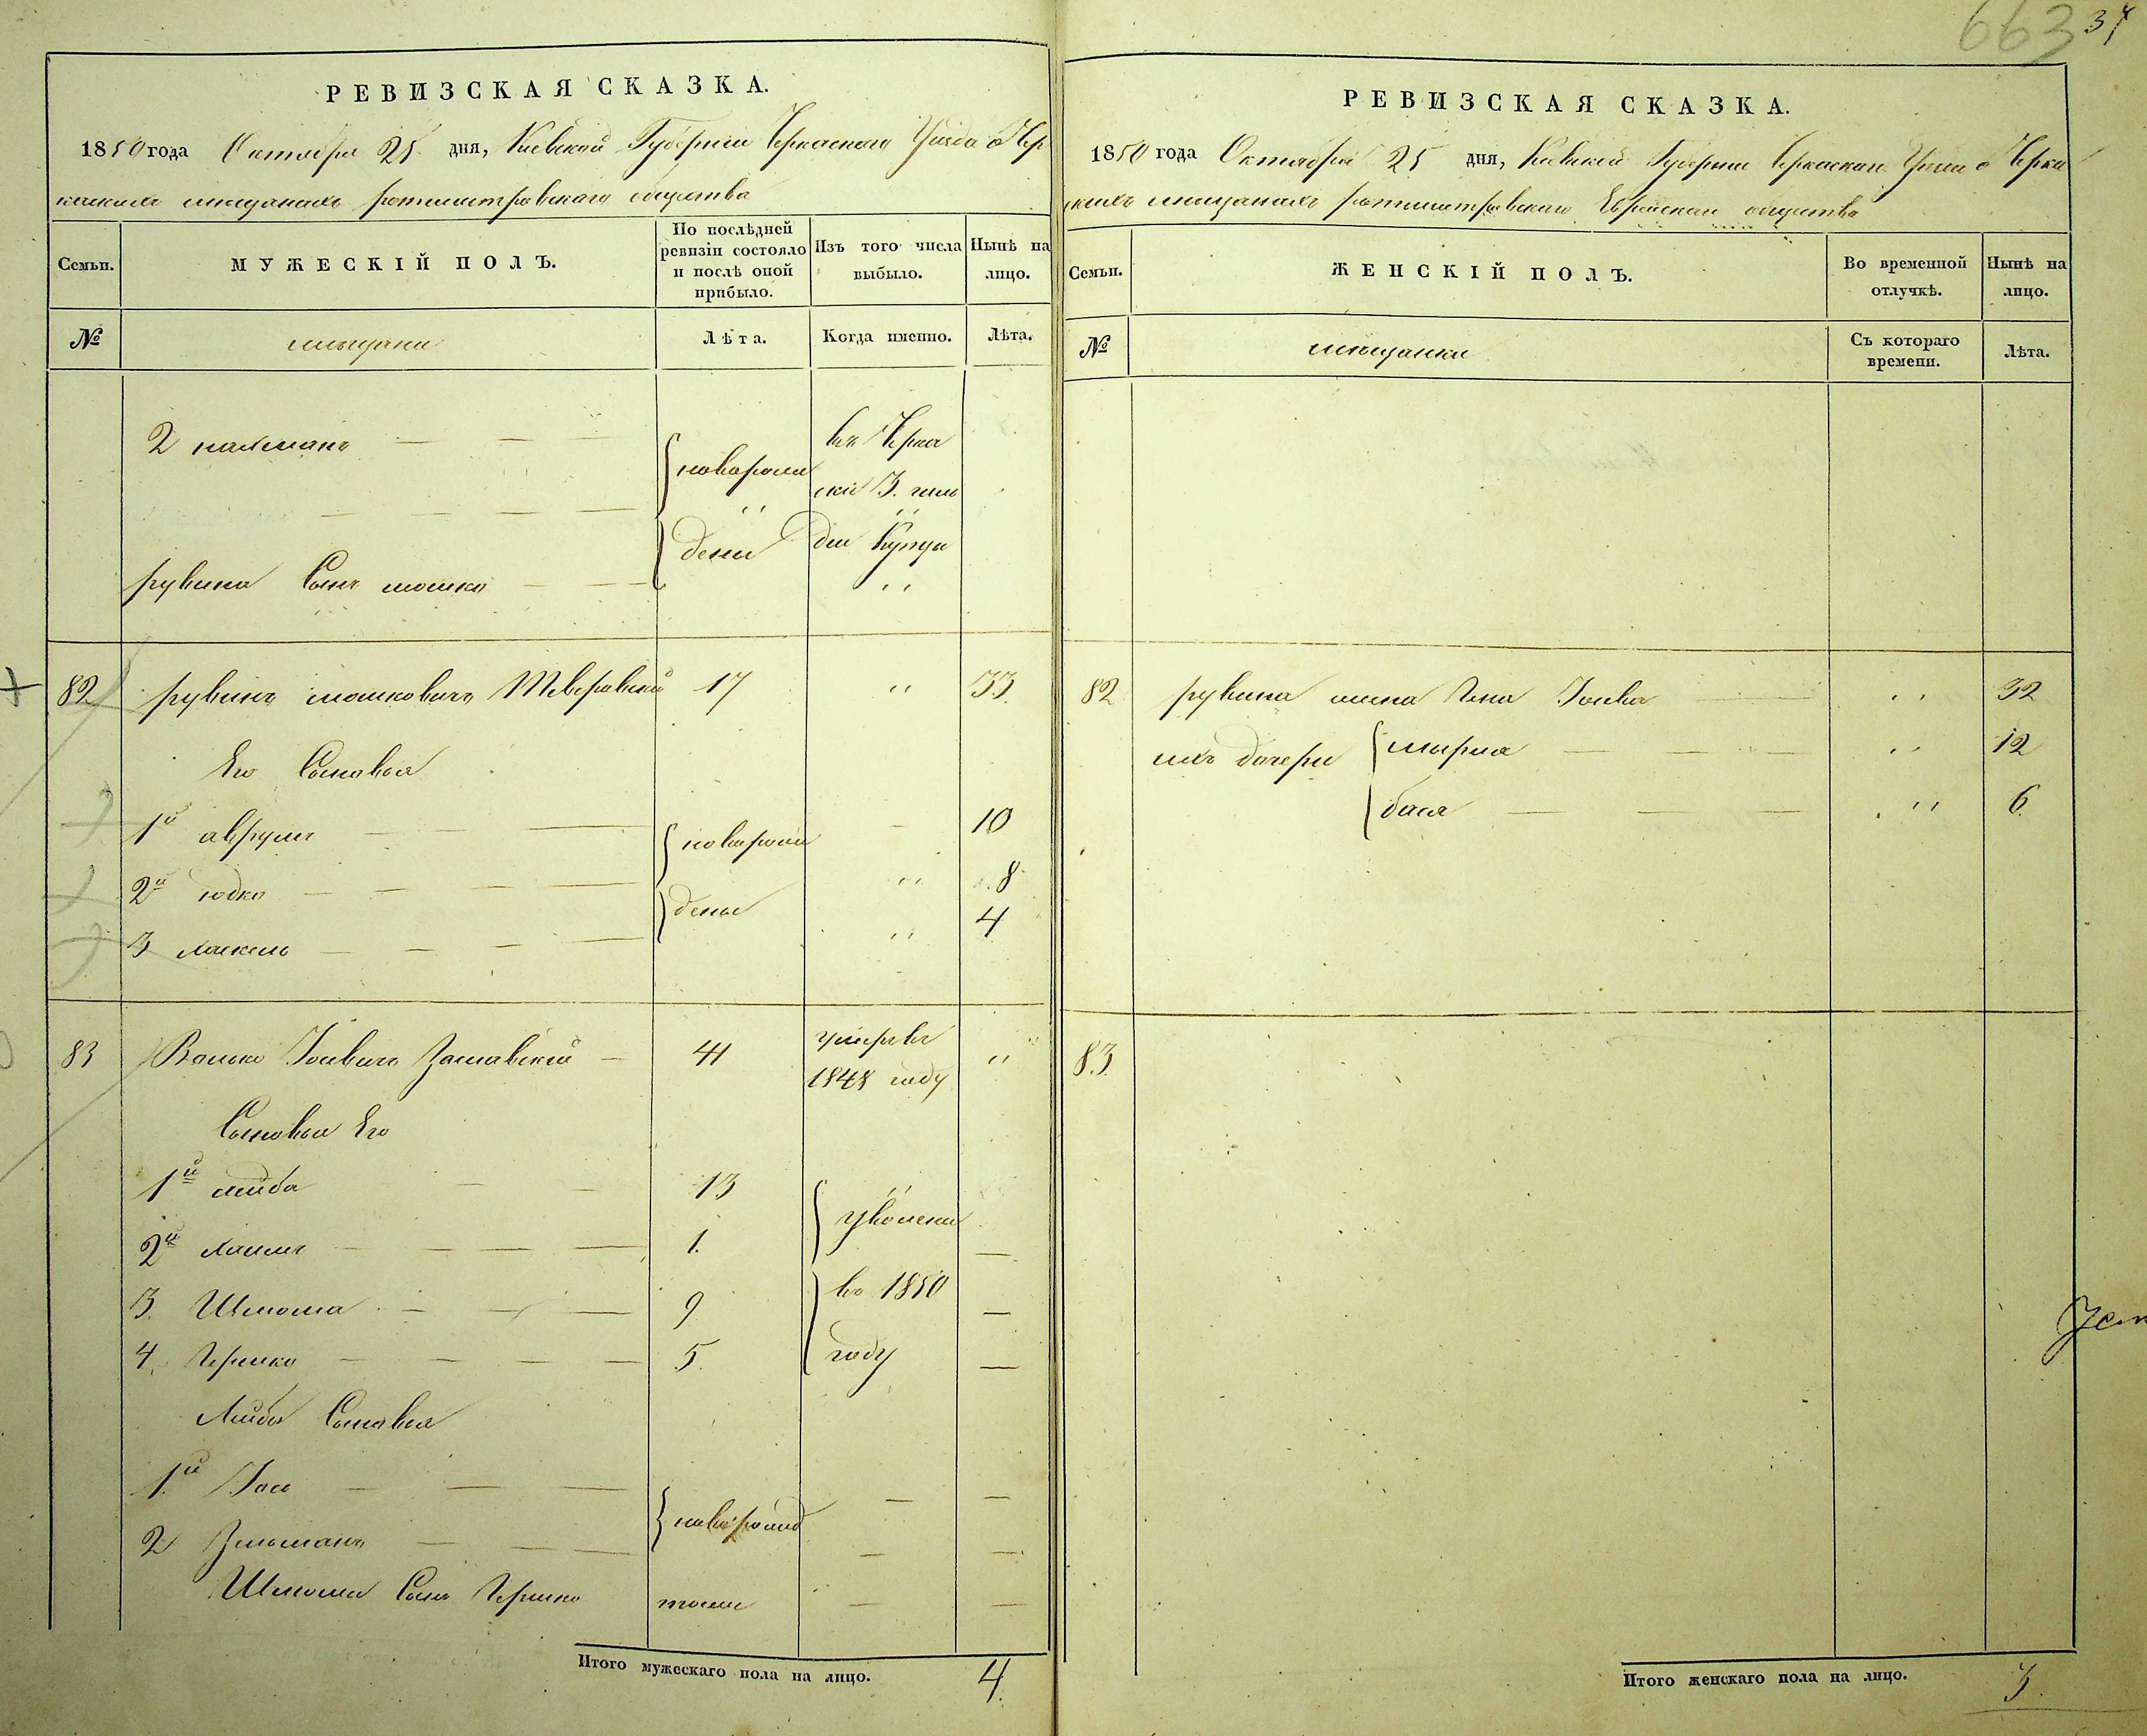 663 34
РЕВИЗСКАЯ СКАЗКА.
1850 года Октября 25 дня, Киевской Губернии Черкаскаго Уезда о Чер
каскихъ мещанахъ ротмистровскаго общества
Семьи.
МУЖЕСКІЙ ПОЛЪ.
По послѣдней ревизіи состояло и послѣ оной прибыло.
Изъ того числа выбыло.
Нынѣ на лицо.
№
мещани
Лѣта.
Когда именно.
Лѣта.
2 нахманъ — — —
новорож
вы Черка
ски 3. гиль
дени
дии Купци
рувина Сынъ мошко — —
82 рувинъ мошковичъ Тверовский 17 " 33
Его Сыновья
1й аврумъ — — — новорож 10
2й юдко — — — дены " 8
3 хаскель — — — " 4
83 Волько Іосевичъ Заславский — 41 умеръ 1848 году "
Сыновья Его
1й лейба — — 13 "
уволени
2й хаимъ — — — 1. —
3. Шлиома — — — 9 во 1850 —
4. Гершко — — — 5. году —
Лейбы Сыновья
1й Іось — — — — —
новорожд
2 Зельманъ — — — — —
Шлиомы Сынъ Гершко тоже — —
Итого мужескаго пола на лицо. 4.
РЕВИЗСКАЯ СКАЗКА.
1850 года Октября 25 дня, Киевской Губернии Черкаскаго Уезда о Черка
скихъ мещанахъ ротмистровскаго Еврейскаго общества
Семьи.
ЖЕНСКІЙ ПОЛЪ.
Во временной отлучкѣ.
Нынѣ на лицо.
№
мещанки
Съ котораго времени.
Лѣта.
82 рувина жена Гена Іосева — " 32
ихъ дочери мирля — — — " 12
бася — — — " 6
83.
Итого женскаго пола на лицо. 3